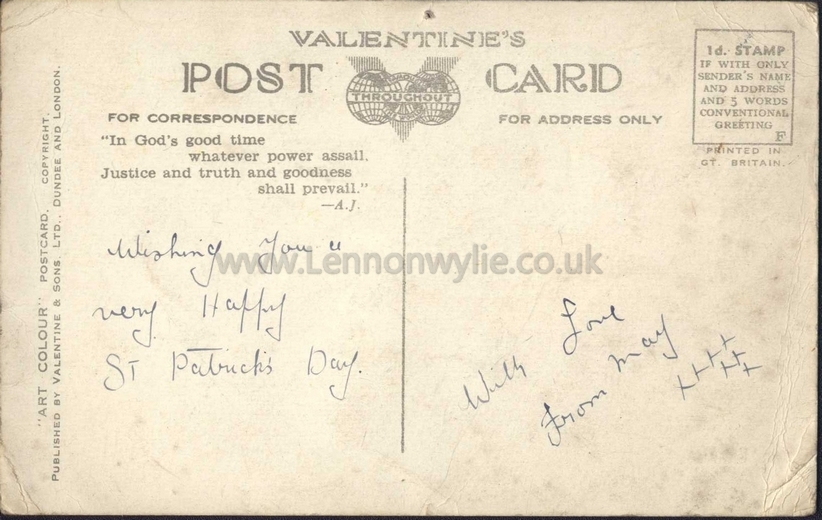 VALENTINE'S
POST CARD
THROUGHOUT
FOR CORRESPONDENCE
FOR ADDRESS ONLY
1d. STAMP
IF WITH ONLY
SENDER'S NAME
AND ADDRESS
AND 5 WORDS
CONVENTIONAL
GREETING
F
PRINTED IN
GT. BRITAIN.
"In God's good time
whatever power assail,
Justice and truth and goodness
shall prevail."
—A.J.
www.Lennonwylie.co.uk
Wishing You a
very Happy
St Patrick's Day.
With Love
from May
++++
+++
"ART COLOUR" POSTCARD. COPYRIGHT.
PUBLISHED BY VALENTINE & SONS, LTD., DUNDEE AND LONDON.